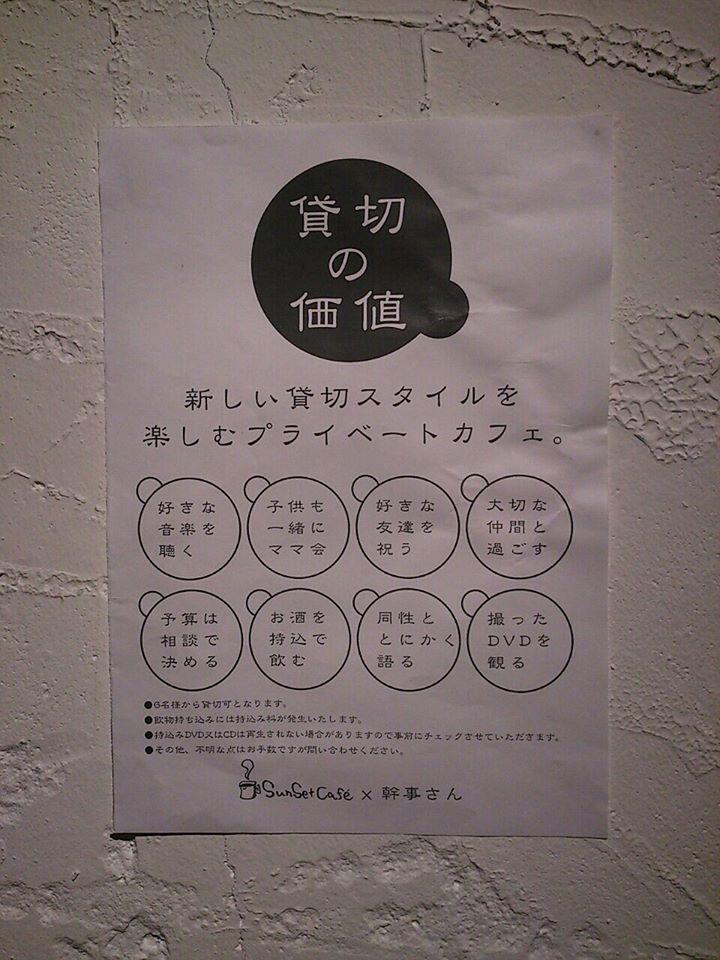 貸切
の
価値
新しい貸切スタイルを
楽しむプライベートカフェ。
好きな
音楽を
聴く
子供も
一緒に
ママ会
好きな
友達を
祝う
大切な
仲間と
過ごす
予算は
相談で
決める
お酒を
持込で
飲む
同性と
とにかく
語る
撮った
DVDを
観る
●6名様から貸切可となります。
●飲物持ち込みには持込み料が発生いたします。
●持込みDVD又はCDは再生されない場合がありますので事前にチェックさせていただきます。
●その他、不明な点はお手数ですが問い合わせください。
SunSetCafé × 幹事さん